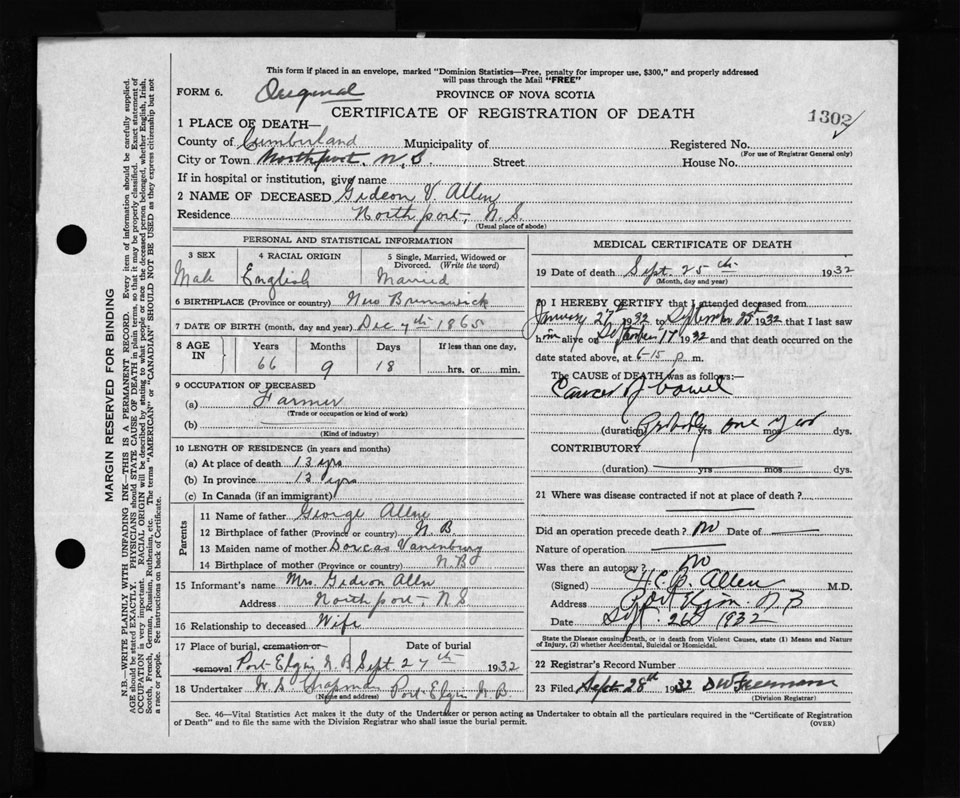 This form if placed in an envelope, marked "Dominion Statistics—Free, penalty for improper use, $300," and properly addressed
will pass through the Mail "FREE"
FORM 6. Original
PROVINCE OF NOVA SCOTIA
CERTIFICATE OF REGISTRATION OF DEATH
1302
1 PLACE OF DEATH—
County of Cumberland Municipality of Registered No.
(For use of Registrar General only)
City or Town Northport, N.S. Street House No.
If in hospital or institution, give name
2 NAME OF DECEASED Gideon V. Allen
Residence Northport, N.S.
(Usual place of abode)
PERSONAL AND STATISTICAL INFORMATION
3 SEX 4 RACIAL ORIGIN 5 Single, Married, Widowed or
Divorced. (Write the word)
Male English Married
6 BIRTHPLACE (Province or country) New Brunswick
7 DATE OF BIRTH (month, day and year) Dec 7th 1865
8 AGE IN Years Months Days If less than one day,
66 9 18 hrs. or min.
9 OCCUPATION OF DECEASED
(a) Farmer
(Trade or occupation or kind of work)
(b)
(Kind of industry)
10 LENGTH OF RESIDENCE (in years and months)
(a) At place of death 13 yrs
(b) In province 13 yrs
(c) In Canada (if an immigrant)
Parents
11 Name of father George Allen
12 Birthplace of father (Province or country) N.B.
13 Maiden name of mother Dorcas Vanenburg
14 Birthplace of mother (Province or country) N.B.
15 Informant's name Mrs. Gideon Allen
Address Northport, N.S
16 Relationship to deceased Wife
17 Place of burial, cremation or Date of burial
removal Port Elgin N B Sept 27th 1932
18 Undertaker W S Chapman Port Elgin N.B.
(Name and address)
MEDICAL CERTIFICATE OF DEATH
19 Date of death Sept. 25th 1932
(Month, day and year)
20 I HEREBY CERTIFY that I attended deceased from
January 27th 1932 to September 25th 1932 that I last saw
him alive on September 17th 1932 and that death occurred on the
date stated above, at 6-15 p m.
The CAUSE OF DEATH was as follows:—
Cancer of bowel
(duration) Probably one year yrs mos dys.
CONTRIBUTORY
(duration) yrs mos dys.
21 Where was disease contracted if not at place of death?
Did an operation precede death? no Date of
Nature of operation
Was there an autopsy? no
(Signed) Allen M.D.
Address Port Elgin N B
Date Sept. 26 1932
State the Disease causing Death, or in death from Violent Causes, state (1) Means and Nature
of Injury, (2) whether Accidental, Suicidal or Homicidal.
22 Registrar's Record Number
23 Filed Sept 28th 1932 D W Freeman
(Division Registrar)
Sec. 46—Vital Statistics Act makes it the duty of the Undertaker or person acting as Undertaker to obtain all the particulars required in the "Certificate of Registration
of Death" and to file the same with the Division Registrar who shall issue the burial permit.
(OVER)
MARGIN RESERVED FOR BINDING
N.B.—WRITE PLAINLY WITH UNFADING INK—THIS IS A PERMANENT RECORD. Every item of information should be carefully supplied.
AGE should be stated EXACTLY. PHYSICIANS should STATE CAUSE OF DEATH in plain terms, so that it may be properly classified. Exact statement of
OCCUPATION is very important. RACIAL ORIGIN will be described by stating to what people or race the deceased person belonged, whether English, Irish,
Scotch, French, German, Russian, Ruthenian, etc. The terms "AMERICAN" or "CANADIAN" SHOULD NOT BE USED as they express citizenship but not
a race or people. See instructions on back of Certificate.